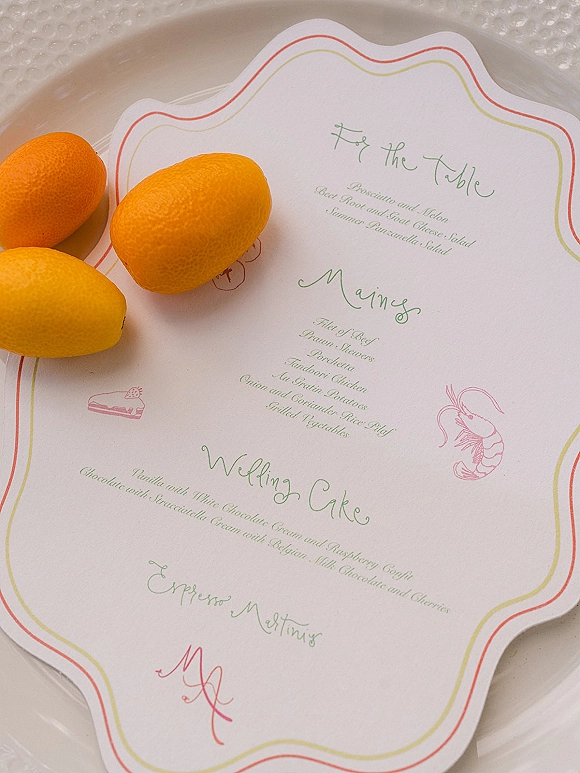 For the Table
Prosciutto and Melon
Beet Root and Goat Cheese Salad
Summer Panzanella Salad
Mains
Filet of Beef
Prawn Skewers
Porchetta
Tandoori Chicken
Au Gratin Potatoes
Onion and Coriander Rice Pilaf
Grilled Vegetables
Wedding Cake
Vanilla with White Chocolate Cream and Raspberry Confit
Chocolate with Stracciatella Cream with Belgian Milk Chocolate and Cherries
Espresso Martinis
M & A